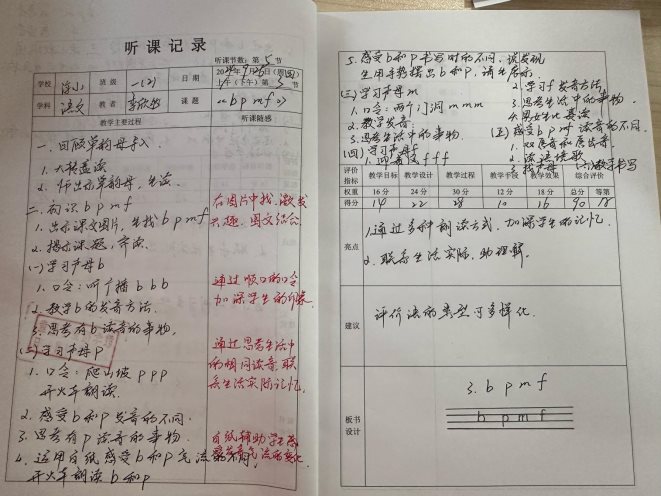 听课记录
听课节数：第 5 节
学校 涂小 班级 一(2) 日期 2024年9月26日(周四)
上午(下午)第3节
学科 语文 教者 课题 《b p m f》
教学主要过程 听课随感
一、回顾单韵母导入
1. 大转盘读
2. 师出示单韵母，生读。
二、初识 b p m f
1. 出示课文图片，先找 b p m f
2. 揭示课题，齐读。
在图片中找，激发
兴趣，图文结合。
(一)学习声母b
1. 口令：听广播 b b b
2. 教学b的发音方法。
3. 思考有b读音的事物。
通过顺口的口令
加深学生的印象。
(二)学习声母p
1. 口令：爬山坡 p p p
开火车朗读。
2. 感受b和p发音的不同。
3. 思考有p读音的事物
4. 运用白纸感受b和p气流的不同，
开火车朗读 b和p
通过思考生活中
的相同读音，联
系生活实际记忆。
白纸辅助学生感
受发音气流的变化
5. 感受b和p书写时的不同，谈发现
生用手势摆出b和p，请生展示
(三)学习声母m
1. 口令：两个门洞 m m m
2. 教学发音
3. 思考生活中的事物
(四)学习声母f
1. f f f
2. 学习f发音方法
3. 思考生活中的事物。
4. 男女生比赛读
(五)感受 b p m f 读音的不同。
2. 读儿歌
找声母
(六)教学书写
评价指标 教学目标 教学设计 教学过程 教学手段 教学效果 综合评价
权重 16分 24分 30分 12分 18分 总分 等第
得分 14 22 28 10 16 90
亮点
1. 通过多种朗读方式，加深学生的记忆。
2. 联系生活实际，助理解。
建议
评价语的类型可多样化。
板书设计
3. b p m f
b p m f